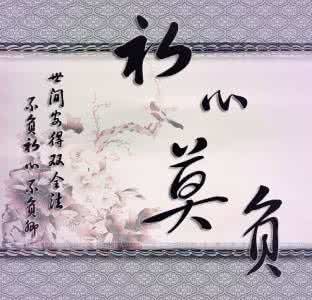 初心莫负
世间安得双全法
不负初心不负卿